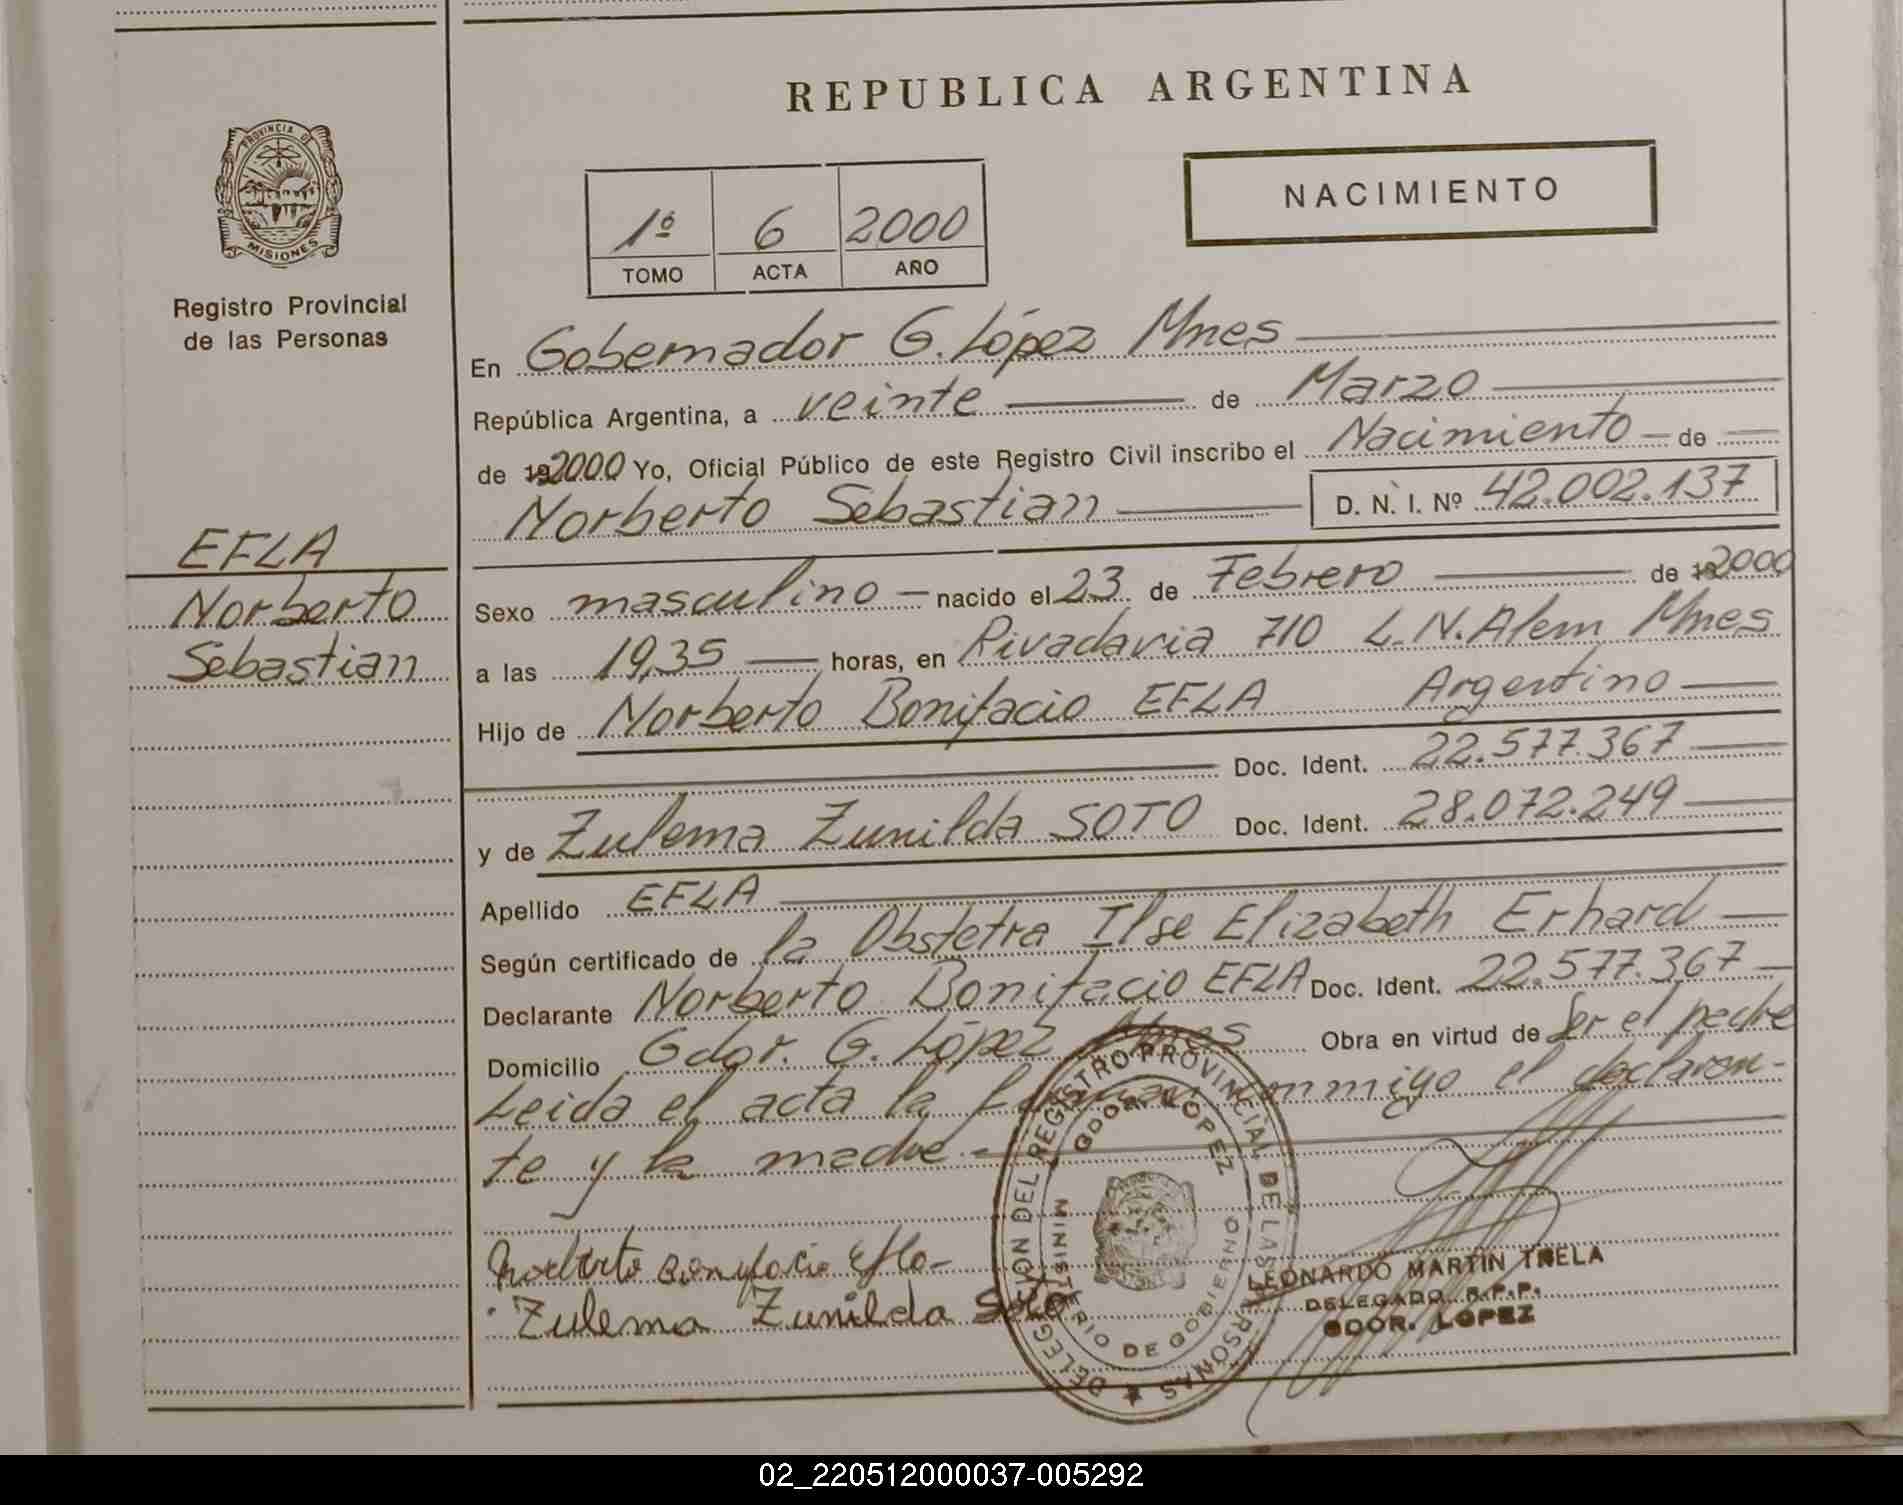 REPUBLICA ARGENTINA
PROVINCIA DE
MISIONES
Registro Provincial
de las Personas
NACIMIENTO
1º 6 2000
TOMO ACTA AÑO
En Gobernador G. López Mnes
República Argentina, a veinte de Marzo
de 192000 Yo, Oficial Público de este Registro Civil inscribo el Nacimiento de
Norberto Sebastian D. N. I. Nº 42.002.137
EFLA
Norberto
Sebastian
Sexo masculino nacido el 23 de Febrero de 192000
a las 19,35 horas, en Rivadavia 710 L.N.Alem Mnes
Hijo de Norberto Bonifacio EFLA Argentino
Doc. Ident. 22.577.367
y de Zulema Zunilda SOTO Doc. Ident. 28.072.249
Apellido EFLA
Según certificado de la Obstetra Ilse Elizabeth Erhard
Declarante Norberto Bonifacio EFLA Doc. Ident. 22.577.367
Domicilio Gdor. G. López Mnes Obra en virtud de Ser el padre
Leida el acta la firman conmigo el declaran-
te y la madre.-
Norberto Bonifacio Efla-
Zulema Zunilda Soto
DELEGACION DEL REGISTRO PROVINCIAL DE LAS PERSONAS
GDOR. LOPEZ
MINISTERIO DE GOBIERNO
LEONARDO MARTIN TRELA
DELEGADO R.P.P.
GDOR. LOPEZ
02_220512000037-005292